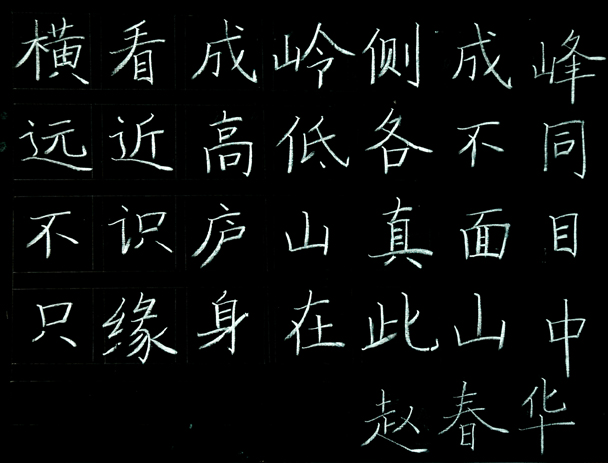 横看成岭侧成峰
远近高低各不同
不识庐山真面目
只缘身在此山中
赵春华